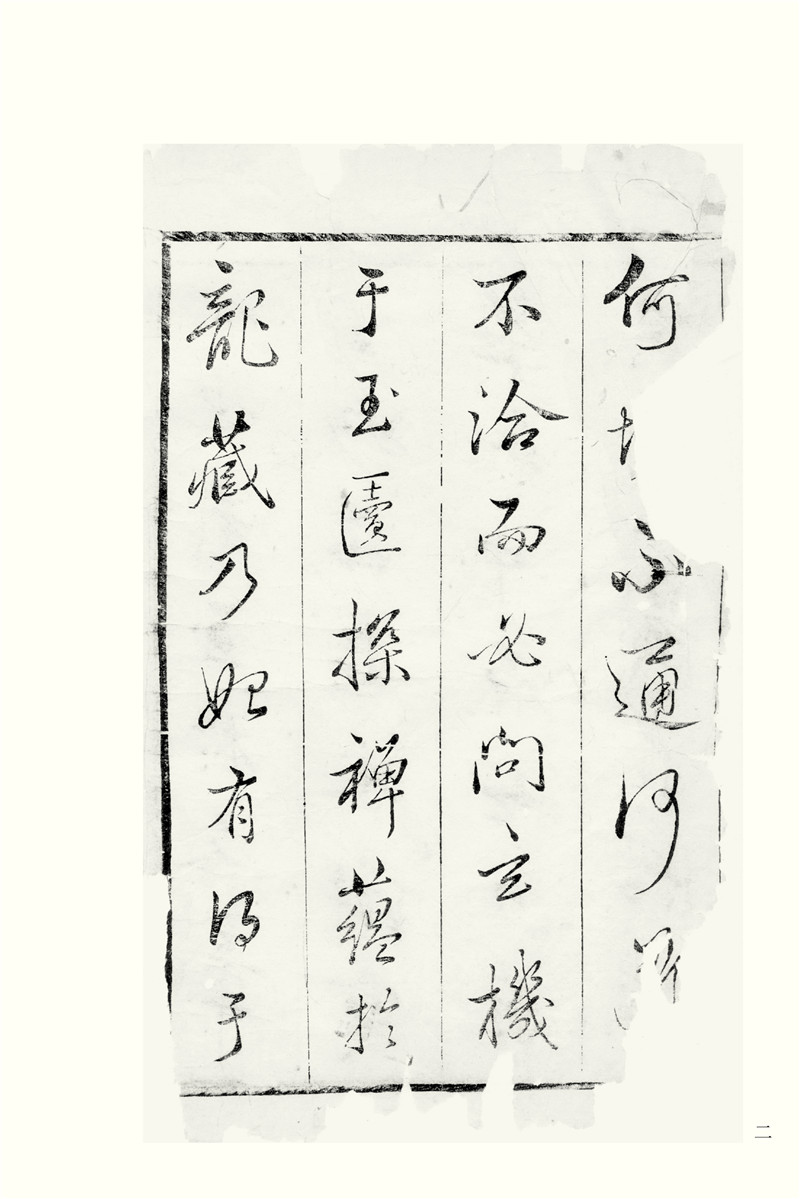 何不通何
不洽而必問玄機
于玉匱探禪蘊於
龍藏乃始有得于
二